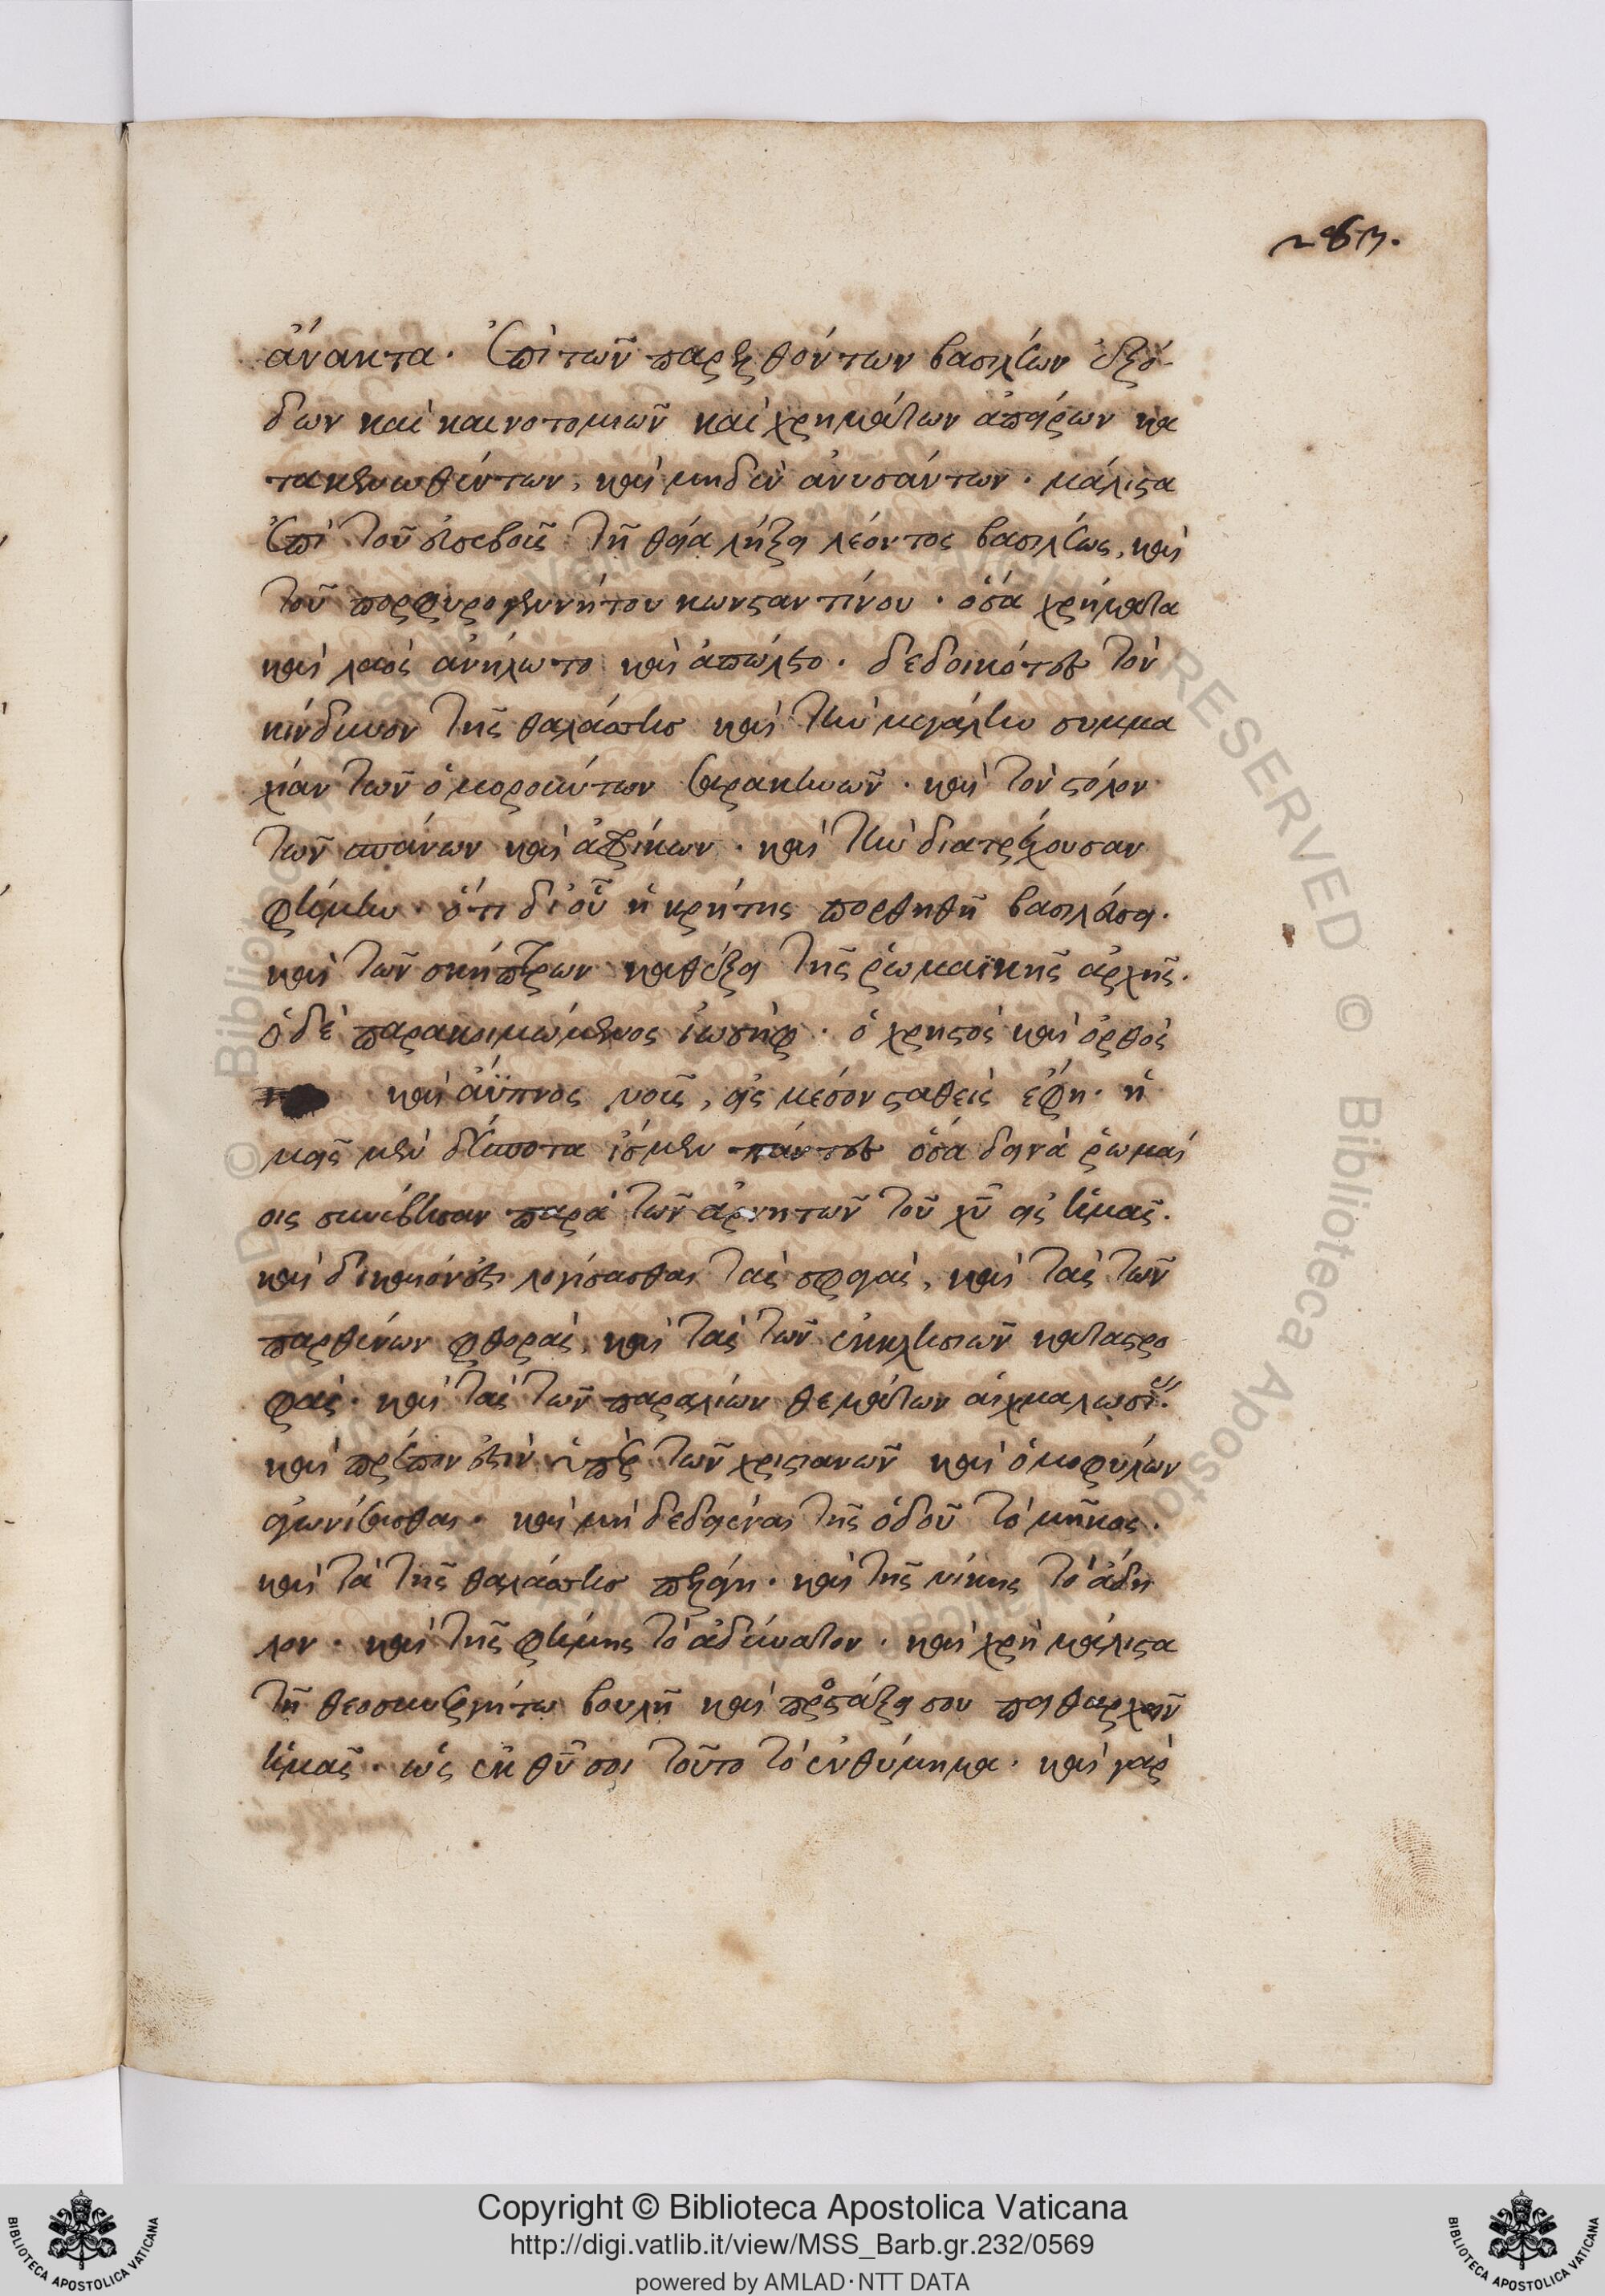 283.
ἄνακτα. ἐπὶ τῶν παρελθόντων βασιλέων ἐξό-
δων καὶ καινοτομιῶν καὶ χρημάτων ἀπείρων κα
τακενωθέντων, καὶ μηδὲν ἀνυσάντων. μάλιστα
ἐπὶ τοῦ εὐσεβοῦς τῇ θεία λήξει λέοντος βασιλέως, καὶ
τοῦ πορφυρογεννήτου κωνσταντίνου. ὅσα χρήματα
καὶ λαὸς ἀνήλωτο καὶ ἀπώλετο. δεδοικότες τὸν
κίνδυνον τῆς θαλάσσης καὶ τὴν μεγάλην συμμα
χίαν τῶν ὁμορούντων σαρακηνῶν. καὶ τὸν στόλον
τῶν σπάνων καὶ ἀφρίκων. καὶ τὴν διατρέχουσαν
φήμην. ὅτι δι οὗ ἡ κρήτης πορθηθῇ βασιλεύσει.
καὶ τῶν σκήπτρων καθέξει τῆς ῥωμαϊκῆς ἀρχῆς.
ὁ δὲ παρακοιμώμενος ἰωσὴφ. ὁ χρηστὸς καὶ ὀρθὸς
καὶ ἄϋπνος νοῦς, εἰς μέσον σταθεὶς ἔφη. ἡ
μεῖς μὲν δέσποτα ἴσμεν πάντες ὅσα δεινὰ ῥωμαί
οις συνέβησαν παρὰ τῶν ἀρνητῶν τοῦ χυ εἰς ἡμᾶς.
καὶ δίκαιόν ἐστι λογίσασθαι τὰς σφαγὰς, καὶ τὰς τῶν
παρθένων φθορὰς, καὶ τὰς τῶν ἐκκλησιῶν καταστρο
φὰς. καὶ τὰς τῶν παραλίων θεμάτων αἰχμαλωσί.
καὶ πρέπον ἐστὶν ὑπὲρ τῶν χριστιανῶν καὶ ὁμοφύλων
ἀγωνίσασθαι. καὶ μὴ δεδιέναι τῆς ὁδοῦ τὸ μῆκος.
καὶ τὰ τῆς θαλάσσης πελάγη. καὶ τῆς νίκης τὸ ἄδη
λον. καὶ τῆς φήμης τὸ ἀδύνατον. καὶ χρὴ μάλιστα
τῇ θεοσυνεργήτω βουλῇ καὶ προστάξει σου πειθαρχεῖν
ἡμᾶς. ὡς ἐκ θυ σοι τοῦτο τὸ ἐνθύμημα. καὶ γὰρ
Copyright © Biblioteca Apostolica Vaticana
http://digi.vatlib.it/view/MSS_Barb.gr.232/0569
powered by AMLAD·NTT DATA
BIBLIOTECA APOSTOLICA VATICANA
BIBLIOTECA APOSTOLICA VATICANA